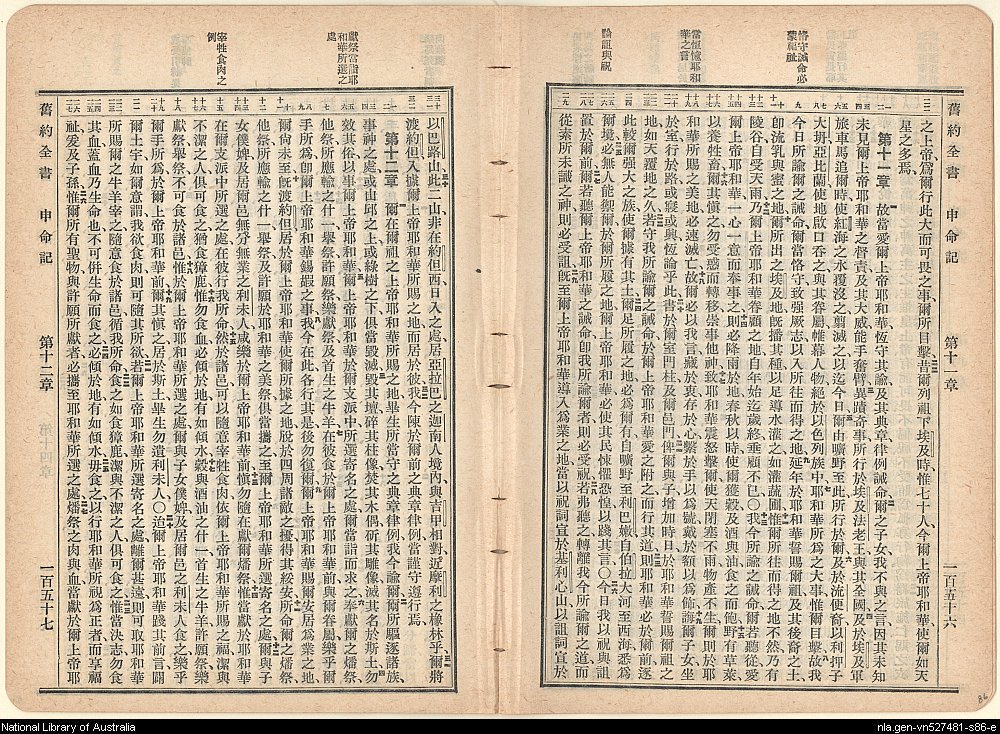 舊約全書
申命記
第十一章
一百五十六
恪守誡命必
蒙福祉
當恆憶耶和
華之言
論詛與祝
之上帝爲爾行此大而可畏之事爾所目擊昔爾列祖下埃及時惟七十人今爾上帝耶和華使爾如天
星之多焉
第十一章 故當愛爾上帝耶和華恆守其諭及其典章律例誡命爾之子女我不與之言因其未知
未見爾上帝耶和華之督責及其大威能手奮臂異蹟奇事所行於埃及法老王與其全國及於埃及軍
旅車馬追爾時使紅海之水覆沒之翦滅之以迄今日爾由曠野至此所行於爾及於流便裔以利押子
大坍亞比蘭使地啟口吞之與其眷屬帷幕人物絕於以色列族中耶和華所爲之大事惟爾目擊故我
今日所諭爾之誡命爾當恪守致強厥志以入所往而得之地延年於耶和華誓賜爾祖及其後裔之土
卽流乳與蜜之地爾所出之埃及地旣播其種以足導水灌之如灌蔬圃惟爾所往而得之地不然乃有
陵谷自受天雨乃爾上帝耶和華眷顧之地自年始迄歲終垂顧不已○我今所諭之誡命爾若聽從愛
爾上帝耶和華一心一意而奉事之則必降雨於地春秋以時使爾獲穀及酒與油食之而飽野有草萊
以養牲畜爾其慎之勿受惑而轉移崇事他神致耶和華震怒擊爾使天閉塞不雨物產不生爾則於耶
和華所賜之美地必速滅亡故爾必以我言藏於衷存於心繫於手以爲號戴於額以爲飾誨爾子女坐
於室行於路或寢或興恆論乎此書於爾室門柱及爾邑門俾爾與子增加時日於耶和華誓賜爾祖之
地如天覆地之久若守我所諭爾之誡命於爾上帝耶和華愛之附之而行其道則耶和華必於爾前逐
此較爾強大之族使爾據有其土爾足所履之地必爲爾有自曠野至利巴嫩自伯拉大河至西海悉爲
爾境必無人能禦爾於爾所履之地爾上帝耶和華必使其民悚懼恐惶以踐其言○今日我以祝與詛
置於爾前爾若聽爾上帝耶和華之誡命卽我所諭爾者則必受祝若弗聽之轉離我今所諭之道而
從素所未識之神則必受詛旣至爾上帝耶和華導入爲業之地當以祝詞宣於基利心山以詛詞宣於
舊約全書
申命記
第十二章
一百五十七
獻祭當詣耶
和華所選之
處
宰牲食肉之
例
以巴路山此二山非在約但西日入之處居亞拉巴之迦南人境內與吉甲相對近摩利之橡林乎爾將
渡約但入據爾上帝耶和華所賜之地而居於彼我今陳於爾前之典章律例當謹守遵行焉
第十二章 爾在爾祖之上帝耶和華所賜之地畢生所當守之典章律例我今諭爾爾所驅逐諸族
事神之處或山邱之上或綠樹之下俱當毀滅毀其壇碎其柱像焚其木偶斫其雕像滅其名於斯土勿
效其俗以事爾上帝耶和華惟爾上帝耶和華於爾支派中所選寄名之處爾當詣而求之奉獻爾之燔祭
他祭所應輸之什一舉祭許願祭樂獻祭及首生之牛羊在彼食於爾上帝耶和華前爾與眷屬樂乎爾
手所爲卽爾上帝耶和華錫嘏之事我今在此各行其是後勿復爾爾上帝耶和華賜爾安居爲業之地
爾尚未至旣渡約但居於爾上帝耶和華使爾所據之地脫於四周諸敵之擾得其綏安所命爾之燔祭
他祭所應輸之什一舉祭及許願於耶和華之美祭俱當攜之至爾上帝耶和華所選寄名之處爾與子
女僕婢及居爾邑無分無業之利未人咸樂於爾上帝耶和華前慎勿隨在獻爾燔祭惟當獻於耶和華
在爾支派中所選之處在彼行我所命然於諸邑可以隨意宰牲食肉依爾上帝耶和華所賜之福潔與
不潔之人俱可食之猶食獐鹿惟勿食血必傾於地有如傾水穀與酒油之什一首生之牛羊許願祭樂
獻祭舉祭不可食於諸邑惟於爾上帝耶和華所選之處爾與子女僕婢及居爾邑之利未人食之樂乎
爾手所爲於爾上帝耶和華前爾其慎之居於斯土畢生勿遺利未人○迨爾上帝耶和華踐其前言闢
爾土宇如爾意謂我欲食肉則可隨其所欲若爾上帝耶和華所選寄名之處離爾甚遠則可取耶和華
所賜爾之牛羊宰之隨意食於諸邑循我所命食之如食獐鹿潔與不潔之人俱可食之惟當決志勿食
其血蓋血乃生命也不可倂生命而食之必傾於地有如傾水毋食之以行耶和華所視爲正者而享福
祉爰及子孫惟爾所有聖物與許願所獻者必攜至耶和華所選之處燔祭之肉與血當獻於爾上帝耶
National Library of Australia
nla.gen-vn527481-s86-e
86